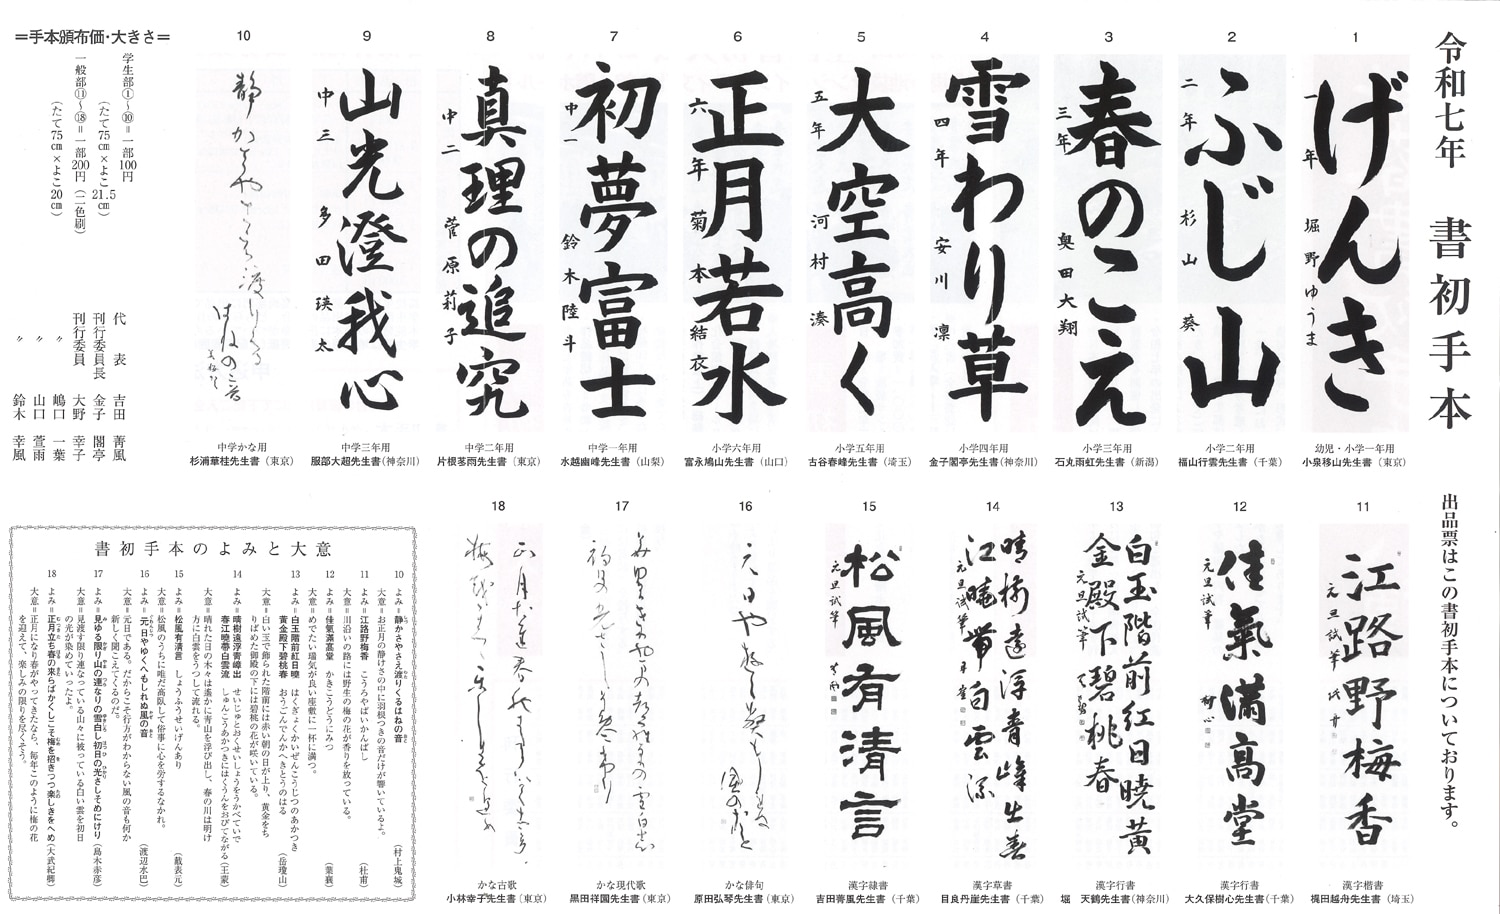 令和七年 書初手本
出品票はこの書初手本についております。
1
げんき
一年 堀野ゆうま
幼児・小学一年用
小泉移山先生書（東京）
2
ふじ山
二年 杉山葵
小学二年用
福山行雲先生書（千葉）
3
春のこえ
三年 奥田大翔
小学三年用
石丸雨虹先生書（新潟）
4
雪わり草
四年 安川凛
小学四年用
金子閣亭先生書（神奈川）
5
大空高く
五年 河村湊
小学五年用
古谷春峰先生書（埼玉）
6
正月若水
六年 菊本結衣
小学六年用
富永鳩山先生書（山口）
7
初夢富士
中一 鈴木陸斗
中学一年用
水越幽峰先生書（山梨）
8
真理の追究
中二 菅原莉子
中学二年用
片根茗雨先生書（東京）
9
山光澄我心
中三 多田瑛太
中学三年用
服部大超先生書（神奈川）
10
静かさやさえ渡りくる
はねの音
中学かな用
杉浦華桂先生書（東京）
＝手本頒布価・大きさ＝
学生部①〜⑩＝一部100円
（たて75㎝×よこ21.5㎝）
一般部⑪〜⑱＝一部200円（二色刷）
（たて75㎝×よこ20㎝）
代表 吉田菁風
刊行委員長 金子閣亭
刊行委員 大野幸子
〃 嶋口一葉
〃 山口萱雨
〃 鈴木幸風
11
江路野梅香
元旦試筆
漢字楷書
梶田越舟先生書（埼玉）
12
佳氣滿高堂
元旦試筆 樹心
漢字行書
大久保樹心先生書（千葉）
13
白玉階前紅日曉黃
金殿下碧桃春
元旦試筆
漢字行書
堀 天鶴先生書（神奈川）
14
晴樹遠浮青嶂出春
江曉帶白雲流
元旦試筆
漢字草書
目良丹崖先生書（千葉）
15
松風有清言
元旦試筆
漢字隷書
吉田菁風先生書（千葉）
16
元日やゆくへもしれぬ
風の音
かな俳句
原田弘琴先生書（東京）
17
かな現代歌
黒田祥園先生書（東京）
18
かな古歌
小林幸子先生書（東京）
書初手本のよみと大意
10 よみ＝静かさやさえ渡りくるはねの音（村上鬼城）
大意＝お正月の静けさの中に羽根つきの音だけが響いているよ。
11 よみ＝江路野梅香 こうろやばいかんばし（杜甫）
大意＝川沿いの路には野生の梅の花が香りを放っている。
12 よみ＝佳氣滿高堂 かきこうどうにみつ（葉襄）
大意＝めでたい瑞気が良い座敷に一杯に満つ。
13 よみ＝白玉階前紅日曉 はくぎょくかいぜんこうじつのあかつき
黄金殿下碧桃春 おうごんでんかへきとうのはる（岳瓊山）
大意＝白い玉で飾られた階前には赤い朝の日が上り、黄金をち
りばめた御殿の下には碧桃の花が咲いている。
14 よみ＝晴樹遠浮青嶂出 せいじゅとおくせいしょうをうかべていで
春江曉帶白雲流 しゅんこうあかつきにはくうんをおびてながる（王蒙）
大意＝晴れた日の木々は遙かに青山を浮び出し、春の川は明け
方に白雲をうつして流れる。
15 よみ＝松風有清言 しょうふうせいげんあり（戴表元）
大意＝松風のうちに唯だ高臥して俗事に心を労するなかれ。
16 よみ＝元日やゆくへもしれぬ風の音（渡辺水巴）
大意＝元日である。だからこそ行方がわからない風の音も何か
新しく聞こえてくるのだ。
17 よみ＝見ゆる限り山の連なりの雪白し初日の光さしそめにけり（島木赤彦）
大意＝見渡す限り連なっている山々に被っている白い雲を初日
の光が染めていったよ。
18 よみ＝正月立ち春の来らばかくしこそ梅を招きつつ楽しきをへめ（大弐紀卿）
大意＝正月になり春がやってきたなら、毎年このように梅の花
を迎えて、楽しみの限りを尽くそう。